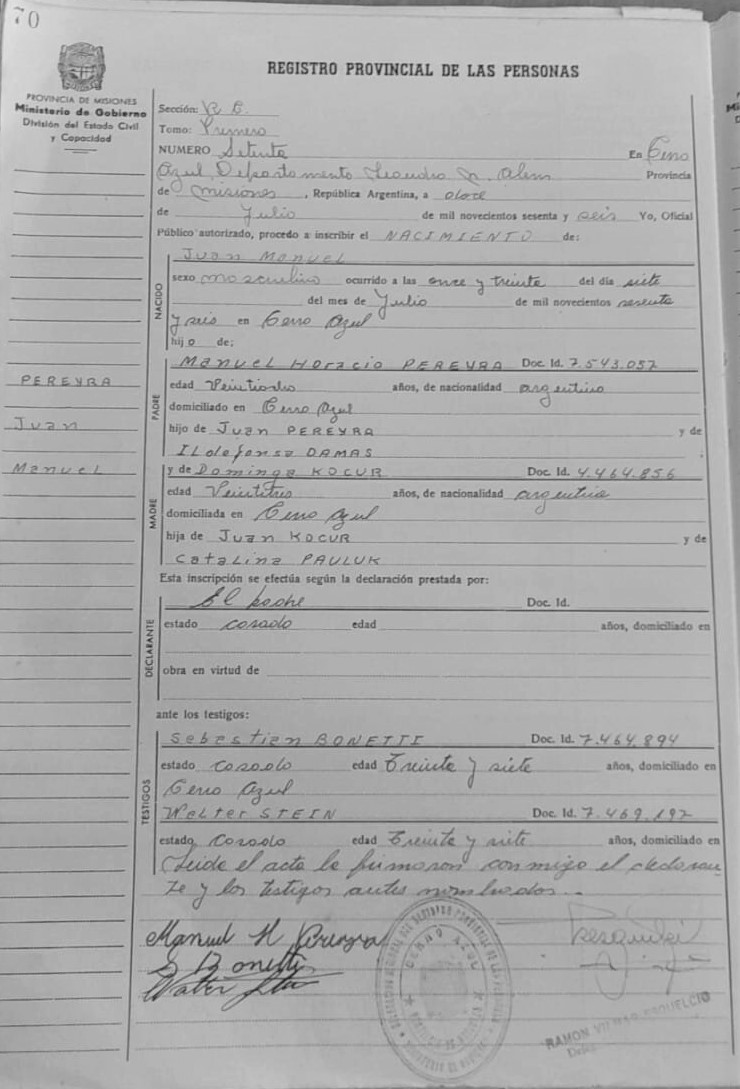 70
REGISTRO PROVINCIAL DE LAS PERSONAS
PROVINCIA DE MISIONES
Ministerio de Gobierno
División del Estado Civil
y Capacidad
Sección:
Tomo: Primero
NUMERO Setenta En Cerro
Azul Departamento Leandro N. Alem Provincia
de Misiones, República Argentina, a doce
de Julio de mil novecientos sesenta y seis Yo, Oficial
Público autorizado, procedo a inscribir el NACIMIENTO de:
NACIDO
Juan Manuel
sexo masculino ocurrido a las once y treinta del día siete
del mes de Julio de mil novecientos sesenta
y seis en Cerro Azul
hijo de:
PADRE
Manuel Horacio PEREYRA Doc. Id. 7.543.057
edad Veintiocho años, de nacionalidad argentino
domiciliado en Cerro Azul
hijo de Juan PEREYRA y de
Ildefonsa DAMAS
PEREYRA
Juan
Manuel
MADRE
y de Dominga KOCUR Doc. Id. 4.464.856
edad Veintitres años, de nacionalidad argentina
domiciliada en Cerro Azul
hija de Juan KOCUR y de
Catalina PAULUK
Esta inscripción se efectúa según la declaración prestada por:
DECLARANTE
El padre Doc. Id.
estado casado edad años, domiciliado en
obra en virtud de
ante los testigos:
TESTIGOS
Sebastian BONETTI Doc. Id. 7.464.894
estado casado edad Treinta y siete años, domiciliado en
Cerro Azul
Walter STEIN Doc. Id. 7.469.192
estado, casado edad Treinta y siete años, domiciliado en
Leida el acta la firmaron conmigo el declaran-
te y los testigos antes nombrados.-
Manuel H Pereyra
S Bonetti
Walter Stein
CERRO AZUL
RAMON